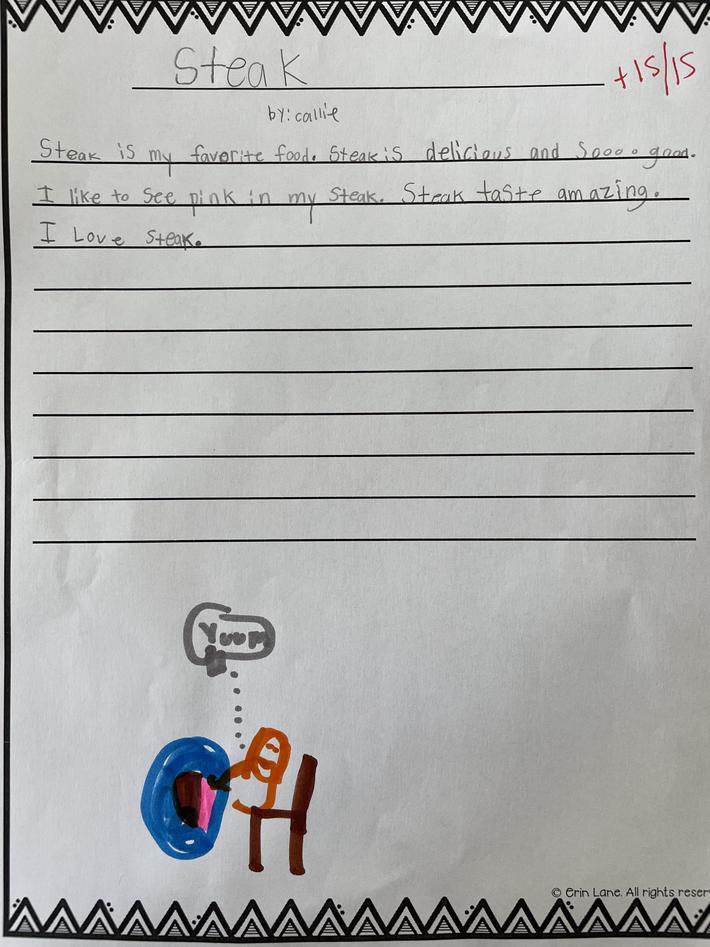 Steak
+15/15
by: callie
Steak is my favorite food. Steak is delicious and Soooo good.
I like to see pink in my steak. Steak taste amazing.
I Love steak.
Yuum
© Erin Lane. All rights reser